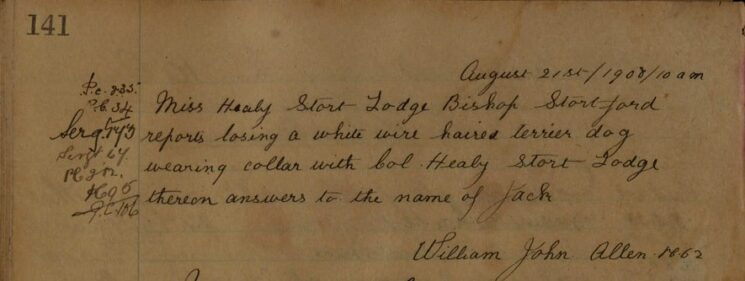 141
August 21st/1908/10am
P.c. 235
P.C. 34
Miss Healy Stort Lodge Bishop Stortford
Sergt
reports losing a white wire haired terrier dog
Sergt 64
wearing collar with Col. Healy Stort Lodge
thereon answers to the name of Jack
P.C. 106
William John Allen